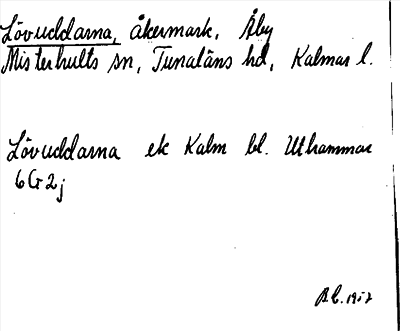 Lövuddarna, åkermark, Åby
Misterhults sn, Tunaläns hd, Kalmar l.
Lövuddarna ek Kalm bl. Uthammar
6G2j
B.C. 1952